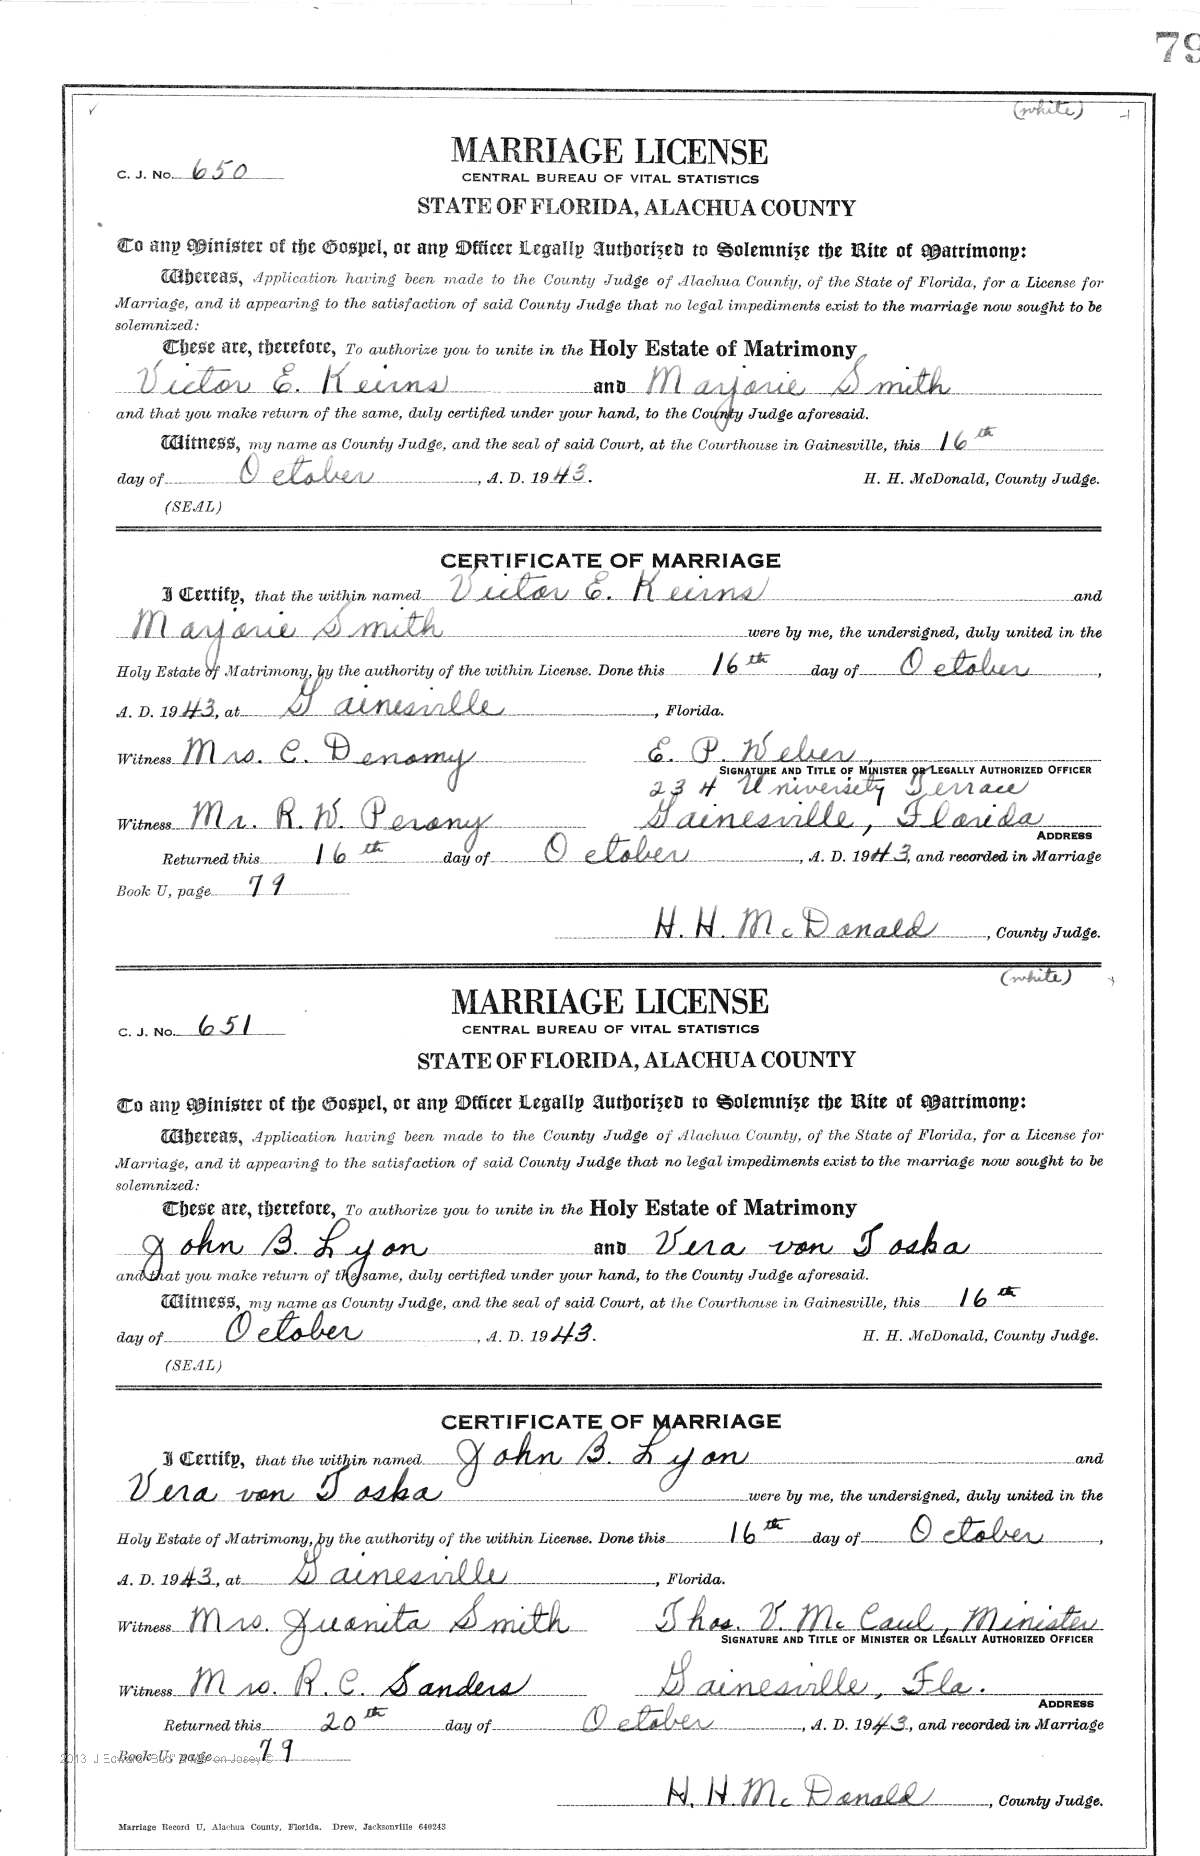 79
(white)
MARRIAGE LICENSE
C. J. No. 650
CENTRAL BUREAU OF VITAL STATISTICS
STATE OF FLORIDA, ALACHUA COUNTY
To any Minister of the Gospel, or any Officer Legally Authorized to Solemnize the Rite of Matrimony:
Whereas, Application having been made to the County Judge of Alachua County, of the State of Florida, for a License for
Marriage, and it appearing to the satisfaction of said County Judge that no legal impediments exist to the marriage now sought to be
solemnized:
These are, therefore, To authorize you to unite in the Holy Estate of Matrimony
Victor E. Keirns and Marjorie Smith
and that you make return of the same, duly certified under your hand, to the County Judge aforesaid.
Witness, my name as County Judge, and the seal of said Court, at the Courthouse in Gainesville, this 16th
day of October, A. D. 1943. H. H. McDonald, County Judge.
(SEAL)
CERTIFICATE OF MARRIAGE
I Certify, that the within named Victor E. Keirns and
Marjorie Smith were by me, the undersigned, duly united in the
Holy Estate of Matrimony, by the authority of the within License. Done this 16th day of October,
A. D. 1943, at Gainesville, Florida.
Witness Mrs. C. Denomy E. P. Weber,
SIGNATURE AND TITLE OF MINISTER OR LEGALLY AUTHORIZED OFFICER
234 University Terrace
Witness Mr. R. W. Perony Gainesville, Florida
ADDRESS
Returned this 16th day of October, A. D. 1943, and recorded in Marriage
Book U, page 79
H. H. McDonald, County Judge.
(white)
MARRIAGE LICENSE
C. J. No. 651
CENTRAL BUREAU OF VITAL STATISTICS
STATE OF FLORIDA, ALACHUA COUNTY
To any Minister of the Gospel, or any Officer Legally Authorized to Solemnize the Rite of Matrimony:
Whereas, Application having been made to the County Judge of Alachua County, of the State of Florida, for a License for
Marriage, and it appearing to the satisfaction of said County Judge that no legal impediments exist to the marriage now sought to be
solemnized:
These are, therefore, To authorize you to unite in the Holy Estate of Matrimony
John B. Lyon and Vera von Toska
and that you make return of the same, duly certified under your hand, to the County Judge aforesaid.
Witness, my name as County Judge, and the seal of said Court, at the Courthouse in Gainesville, this 16th
day of October, A. D. 1943. H. H. McDonald, County Judge.
(SEAL)
CERTIFICATE OF MARRIAGE
I Certify, that the within named John B. Lyon and
Vera von Toska were by me, the undersigned, duly united in the
Holy Estate of Matrimony, by the authority of the within License. Done this 16th day of October,
A. D. 1943, at Gainesville, Florida.
Witness Mrs. Juanita Smith Thos. V. McCaul, Minister
SIGNATURE AND TITLE OF MINISTER OR LEGALLY AUTHORIZED OFFICER
Witness Mrs. R. C. Sanders Gainesville, Fla.
ADDRESS
Returned this 20th day of October, A. D. 1943, and recorded in Marriage
Book U, page 79
H. H. McDonald, County Judge.
Marriage Record U, Alachua County, Florida. Drew, Jacksonville 640243